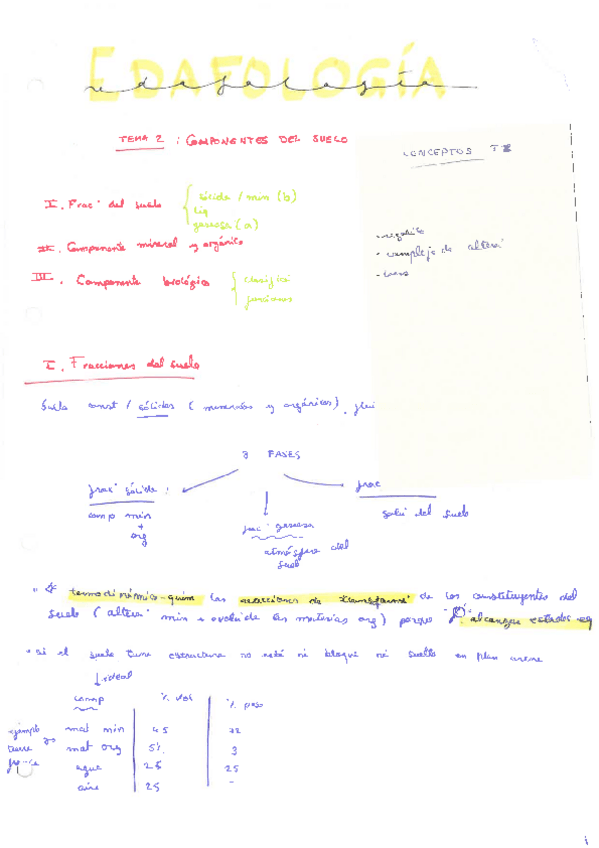 EDAFOLOGÍA
edafología
TEMA 2 : COMPONENTES DEL SUELO
CONCEPTOS T
I. Frac° del suelo
sólida / min (b)
liq
gaseosa (a)
II. Componente mineral y orgánico
III. Componente biológico
clasific°
funciones
- regolito
- complejo de alter°
I. Fracciones del suelo
Suelo const / sólidos (minerales y orgánicos),
3 FASES
frac° sólida :
comp min
+
org
frac° gaseosa
atmósfera del
suelo
frac
soluc° del suelo
termodinámico-quím las reacciones de transform° de los constituyentes del
suelo (alter° min + evoluc° de las materias org) porque alcanzan estados eq
* si el suelo tiene estructura no está ni bloque ni suelto en plan arena
ideal
comp % vol % peso
ejemplo
mat min 45 72
mat org 5% 3
agua 25 25
aire 25 -